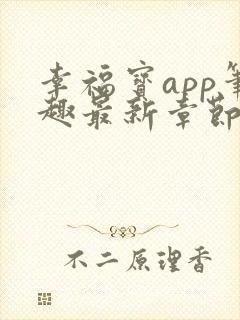 幸福宝app笔
趣最新章節
不二原理香